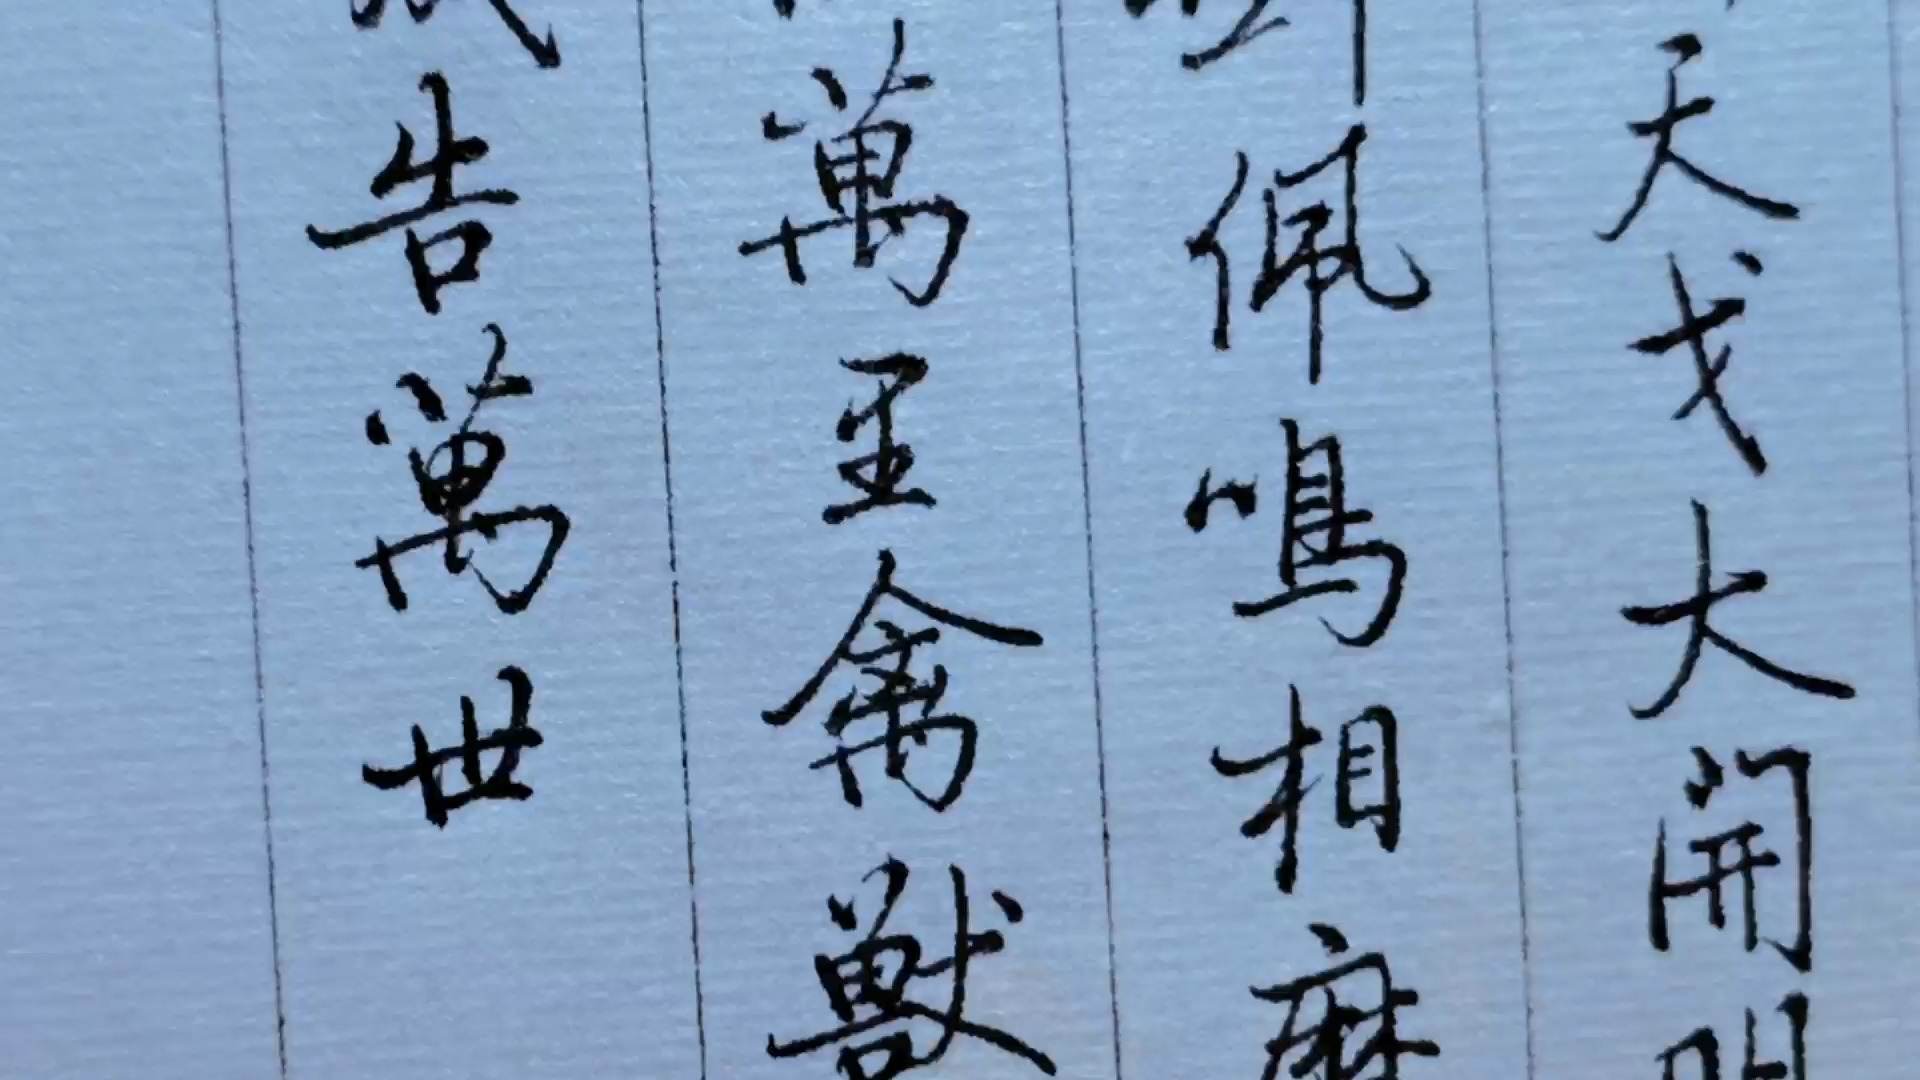 天戈大開
佩鳴相磨
萬里禽獸
告萬世